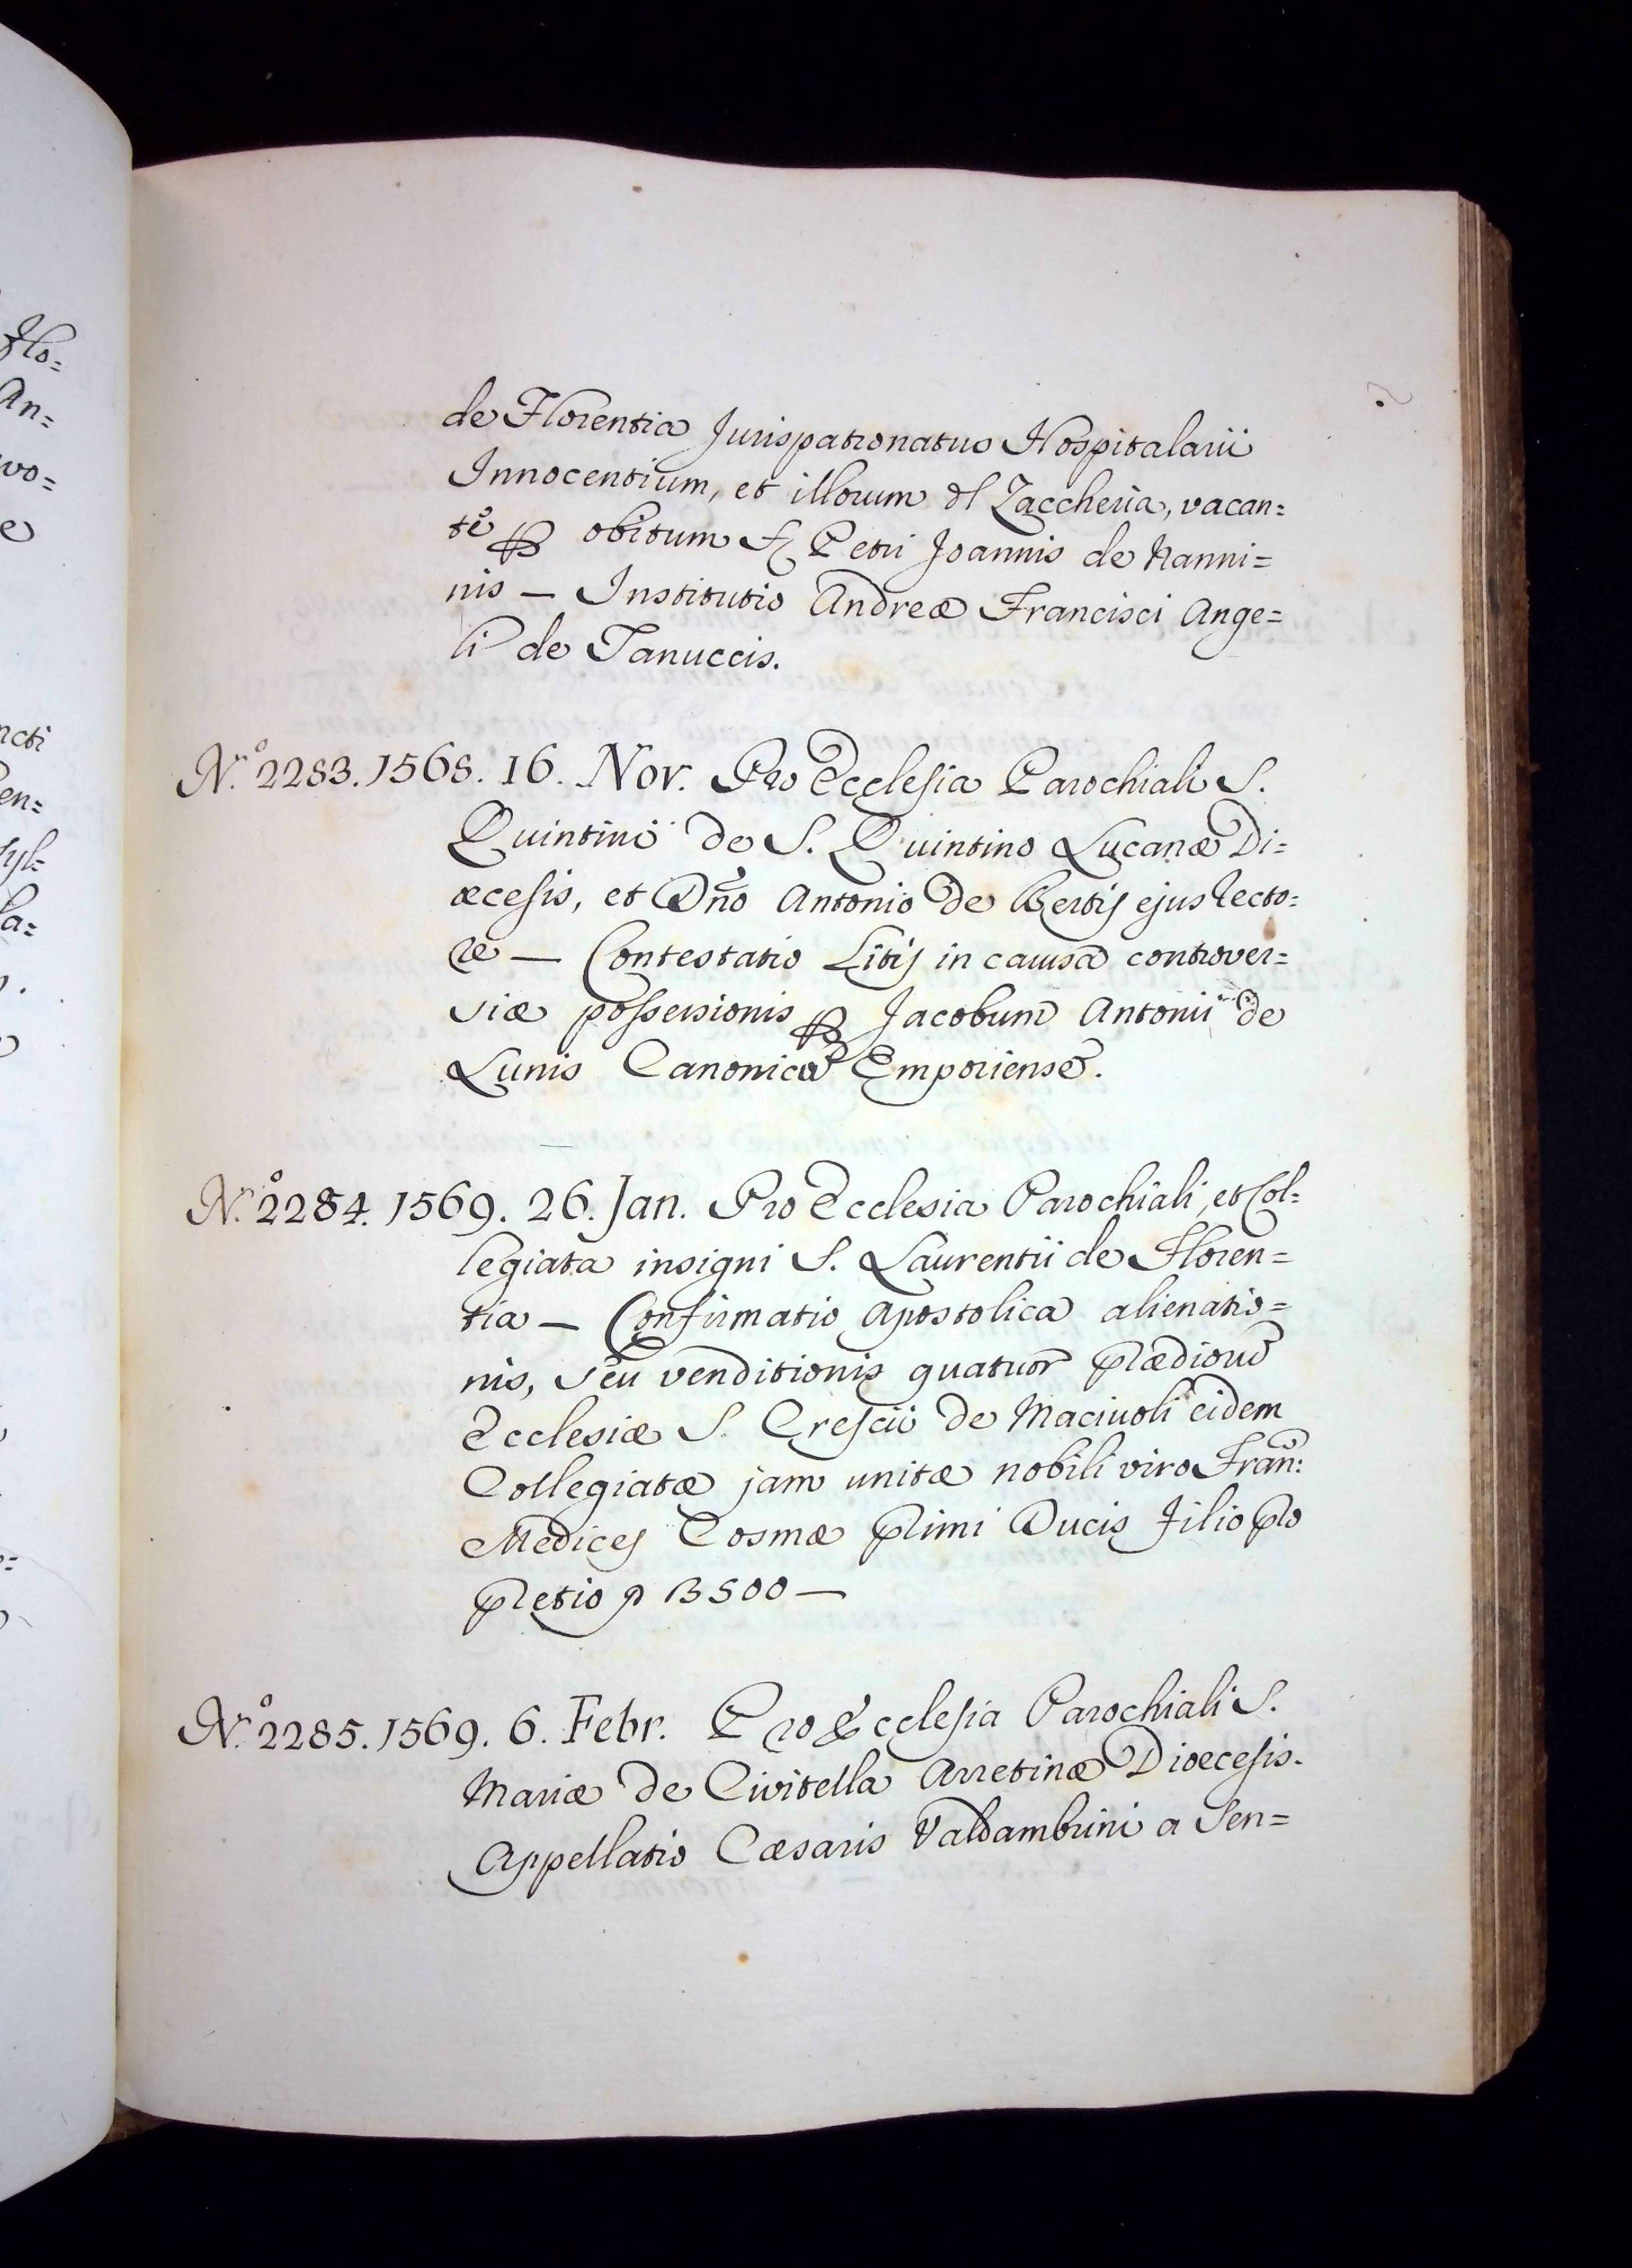 Flo=
An=
vo=
e
ncti
en=
Syl=
la=
de Florentia Jurispatronatus Hospitalarii
Innocentium, et illorum dl Zaccheria, vacan=
te p obitum S Petri Joannis de Nanni=
nis — Institutio Andreæ Francisci Ange=
li de Tanuccis.
N.º 2283. 1568. 16. Nov. Pro Ecclesia Parochiali S.
Quintini de S. Quintino Lucanæ Di=
æcesis, et Dño Antonio de Bertis ejus Recto=
re — Contestatio Litis in causa controver=
siæ possessionis p Jacobum Antonii de
Lunis Canonicũ Emporiensẽ.
N.º 2284. 1569. 26. Jan. Pro Ecclesia Parochiali, et Col=
legiata insigni S. Laurentii de Floren=
tia — Confirmatio Apostolica alienatio=
nis, seu venditionis quatuor prædiorũ
Ecclesiæ S. Crescii de Maciuoli eidem
Collegiatæ jam unitæ nobili viro Frañ:
Medices Cosmæ primi Ducis Filio pro
pretio p B 500 —
N.º 2285. 1569. 6. Febr. Pro Ecclesia Parochiali S.
Mariæ de Civitella Arretinæ Dioecesis.
Appellatio Cæsaris Valdambrini a Sen=